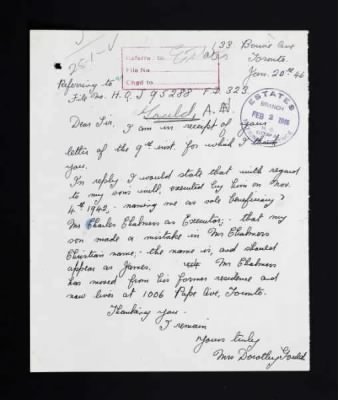 133 Bowie Ave
Toronto.
Jan. 20th 46
Referred to Estates
File No.
Chgd to
Referring to
File no. H.Q. J 95288 F.D. 323
Gould, A. A.
ESTATES
BRANCH
FEB 2 1946
Dear Sir. I am in receipt of your
letter of the 9th inst. for which I thank
you.
In reply I would state that with regard
to my son's will, executed by him on Nov.
4th 1942; naming me as sole beneficiary
Mr Charles Chalmers as Executor; that my
son made a mistake in Mr Chalmers
Christian name; the name is, and should
appear as James. Mr Chalmers
has moved from his former residence and
now lives at 1006 Pape Ave, Toronto.
Thanking you.
I remain
Yours truly
Mrs Dorothy Gould